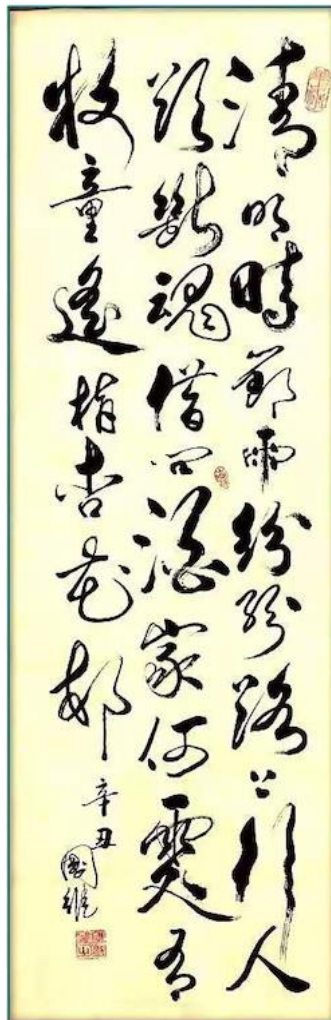 清明時節雨紛紛路上行人
欲斷魂借問酒家何處有
牧童遙指杏花邨
辛丑國維